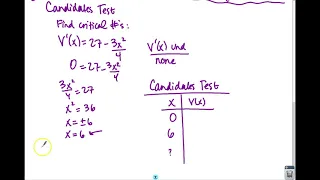 Candidates Test
Find critical #'s:
V'(x) = 27 - 3x²/4
0 = 27 - 3x²/4
3x²/4 = 27
x² = 36
x = ±6
x = 6 ✓
V'(x) und
none
Candidates Test
x | V(x)
0
6
?